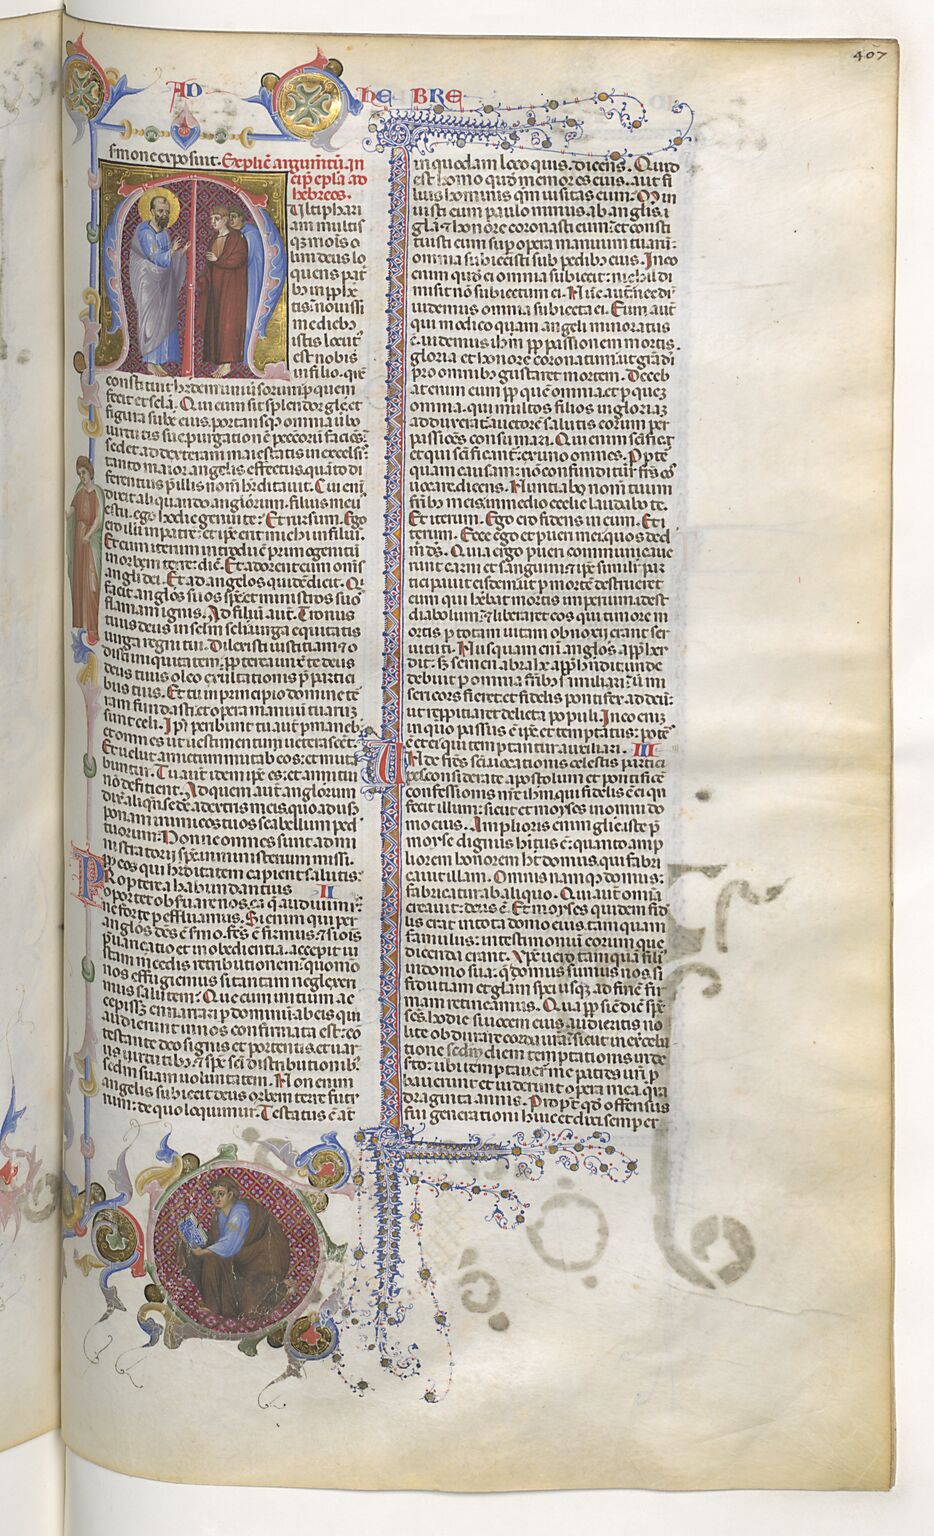 407
AD HEBRE
smone exposuit. Explic̄ argum̄tū. In
cip̄ epl̄a ad
hebreos.
ultiphari
am multis
q̄z mois o
lim deus lo
quens pat̄
in filio. quē
constituit
fecit et scl̄a. Qui cum sit splendor gl̄e et
figura sub̄e eius. portansq̄z omnia
sedet ad dexteram maiestatis in excelsis
tanto maior angelis effectus. quāto di
ferentius p̄ illis nom̄
dixit aliquando anglorum. filius meus
es tu. ego hodie genui te: Et rursum. Ego
ero illi in patrē: et ip̄e erit michi in filiū.
Et cum iterum introduc̄
in orbem terre: dic̄. Et adorent eum om̄s
angli dei. Et ad angelos quidē dicit. Q̄
facit angl̄os suos sp̄c̄ et ministros suos
flamam ignis. Ad filiū aut̄. Tronus
tuus deus in sclm̄ scli
uirga regni tui. Dilexisti iustitiam
odisti iniquitatem: pp̄terea unx̄ te deus
deus tuus oleo exultationis p̄ partici
bus tuis. Et tu in principio domine te
ram fundasti: et opera manuū tuarū
sunt celi. Ip̄i peribunt tu aut̄ p̄maneb̄
et omnes ut uestimentum ueterascēt.
Et uelut amictum mutab̄ eos: et muta
buntur. Tu aut̄ idem ip̄e es: et anni tui
nō deficient. Ad quem aut̄ anglorum
ponam inimicos tuos scabellum ped̄
tuorum: Nonne omnes sunt admi
nistratorii sp̄c̄ in ministerium missi.
pp̄ eos qui hr̄ditatem capient salutis:
Propterea habundantius II
oportet obseruare nos. ea q̄ audiuimꝰ:
ne forte p̄effluamus. Si enim qui per
angl̄os
p̄uaricatio et inobedientia. accepit iu
stam mercedis retributionem: quomo
nos effugiemus si tantam neglexeri
mus salutem: Que cum initium ac
cepiss̄z enarrari p̄ dominū ab eis qui
audierunt in nos confirmata est: cō
testante deo signis et portentis. et uar
iis uirtutibꝫ
scdm̄ suam uoluntatem. Non enim
angelis subiecit deus orbem terre futu
rum: de quo loquimur. Testatus ē aūt
in quodam loco quis. dicens. Quid
est homo quod memor es eius. aut fi
lius hominis qm̄ uisitas eum: Min
uisti eum paulo minus ab anglis.
gl̄a et honore coronasti eum: et consti
tuisti eum sup̄ opera manuum tuarū:
omnia subiecisti sub pedibꝫ eius. In eo
enim quod ei omnia subiecit: nichil di
misit nō subiectum ei. Nūc aut̄ nec di
uidemus omnia subiecta ei. Eum aut̄
qui modico quam angeli minoratus
ē. uidemus ih̄m pp̄ passionem mortis.
gloria et honore coronatum: ut gr̄a di
pro omnibꝫ gustaret mortem. Deceb
at enim eum pp̄ quē omnia. et p̄ quez
omnia. qui multos filios in gloriaz
adduxerat. auctorē salutis eorum per
passiōes consumari. Qui enim sc̄ificat
et qui sc̄ificant̄: ex uno omnes. Pp̄te
quam causam: nō confunditur
uocare dicens. Nuntiabo nom̄ tuum
fr̄ibꝫ meis: in medio eccl̄ie laudabo te.
Et iterum. Ego ero fidens in eum. Et i
terum. Ecce ego et pueri mei. quos ded̄
m̄ dꝰ. Quia ergo pueri communicaue
runt carni et sanguini: et ip̄e simil̄r par
ticipauit eisdem: ut p̄ mortē destrueret
eum qui hēbat mortis imperium. id est
diabolum: et liberaret eos qui timore m
ortis p̄ totam uitam obnoxii erant ser
uituti. Nusquam enī anglos
debuit p̄ omnia fr̄ibꝫ similiari: ū mi
sericors fieret: et fidelis pontifex ad deū:
ut repptiaret delicta populi. In eo eniz
in quo passus ē ip̄e et temptatus: potē
ē et ei qui temptantur auxiliari. III
Unde fr̄es sc̄i uocationis celestis partici
pes. considerate apostolum et pontificē
confessionis nr̄e ih̄m. qui fidelis ē ei qui
fecit illum: sicut et moyses in omni do
mo eius. Amplioris enim glīe iste p̄
moyse dignus hītus ē: quanto amp
liorem honorem ht̄ domus. qui fabri
cauit illam. Omnis namq̄z domus:
fabricatur ab aliquo. Qui aut̄ omīa
creauit: deus ē. Et moyses quidem fid̄
lis erat in tota domo eius. tamquam
famulus: in testimoniū eorum que
dicenda erant. Xp̄c uero tamquā filiꝰ
in domo sua: q̄ domus sumus nos. si
fidutiam et gl̄am spei usq̄z ad finē fir
mam retineamus. Qua pp̄ sic dic̄ sp̄c
sc̄s. hodie si uocem eius audieritis no
lite obdurare corda ur̄a: sicut in exacerba
tione scdm̄ diem temptationis in de
serto: ubi temptauert̄ me patres ur̄i. p̄
bauerunt et uiderunt opera mea. qua
draginta annis. Propt̄ qd̄ offensus
fui generationi huic et dixi semper